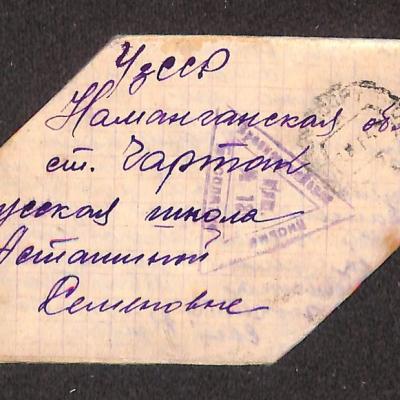 УзССР
Наманганская об
ст. Чартак
усская школа
Асташиной
Семеновне